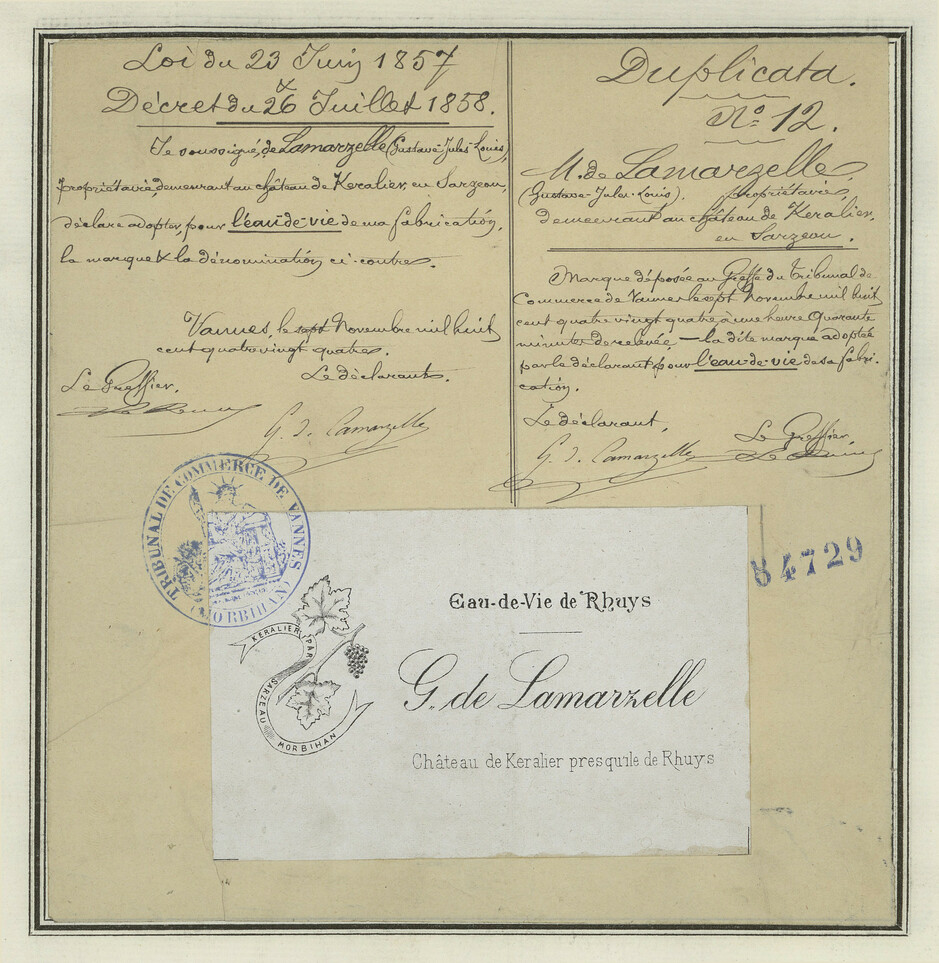 Loi du 23 Juin 1857
&
Décret du 26 Juillet 1858.
Je soussigné, de Lamarzelle (Gustave-Jules-Louis),
propriétaire, demeurant au château de Keralier, en Sarzeau,
déclare adopter, pour l'eau-de-vie de ma fabrication,
la marque & la dénomination ci-contre.
Vannes, le sept Novembre mil huit
cent quatre vingt quatre.
Le Greffier,
Le déclarant.
G. d. Lamarzelle
Duplicata.
No. 12.
M. de Lamarzelle
(Gustave-Jules-Louis), propriétaire,
demeurant au château de Keralier,
en Sarzeau.
Marque déposée au Greffe du Tribunal de
Commerce de Vannes le sept Novembre mil huit
cent quatre vingt quatre à une heure quarante
minutes de relevée, — la dite marque adoptée
par le déclarant pour l'eau-de-vie de sa fabri-
cation.
Le déclarant,
Le Greffier,
G. d. Lamarzelle
TRIBUNAL DE COMMERCE DE VANNES
(MORBIHAN)
84729
KERALIER PAR
SARZEAU
MORBIHAN
Eau-de-Vie de Rhuys
G. de Lamarzelle
Château de Keralier presqu'ile de Rhuys